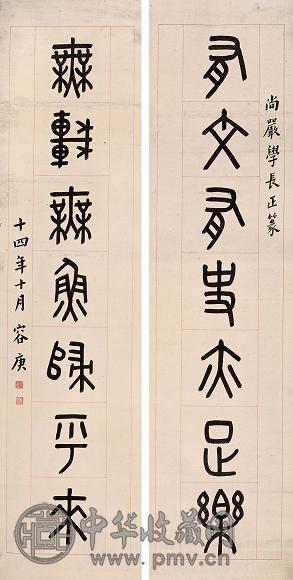 尚嚴學長正篆
有文有史亦足樂
無車無魚歸乎來
十四年十月 容庚
中华收藏网
www.pmv.cn